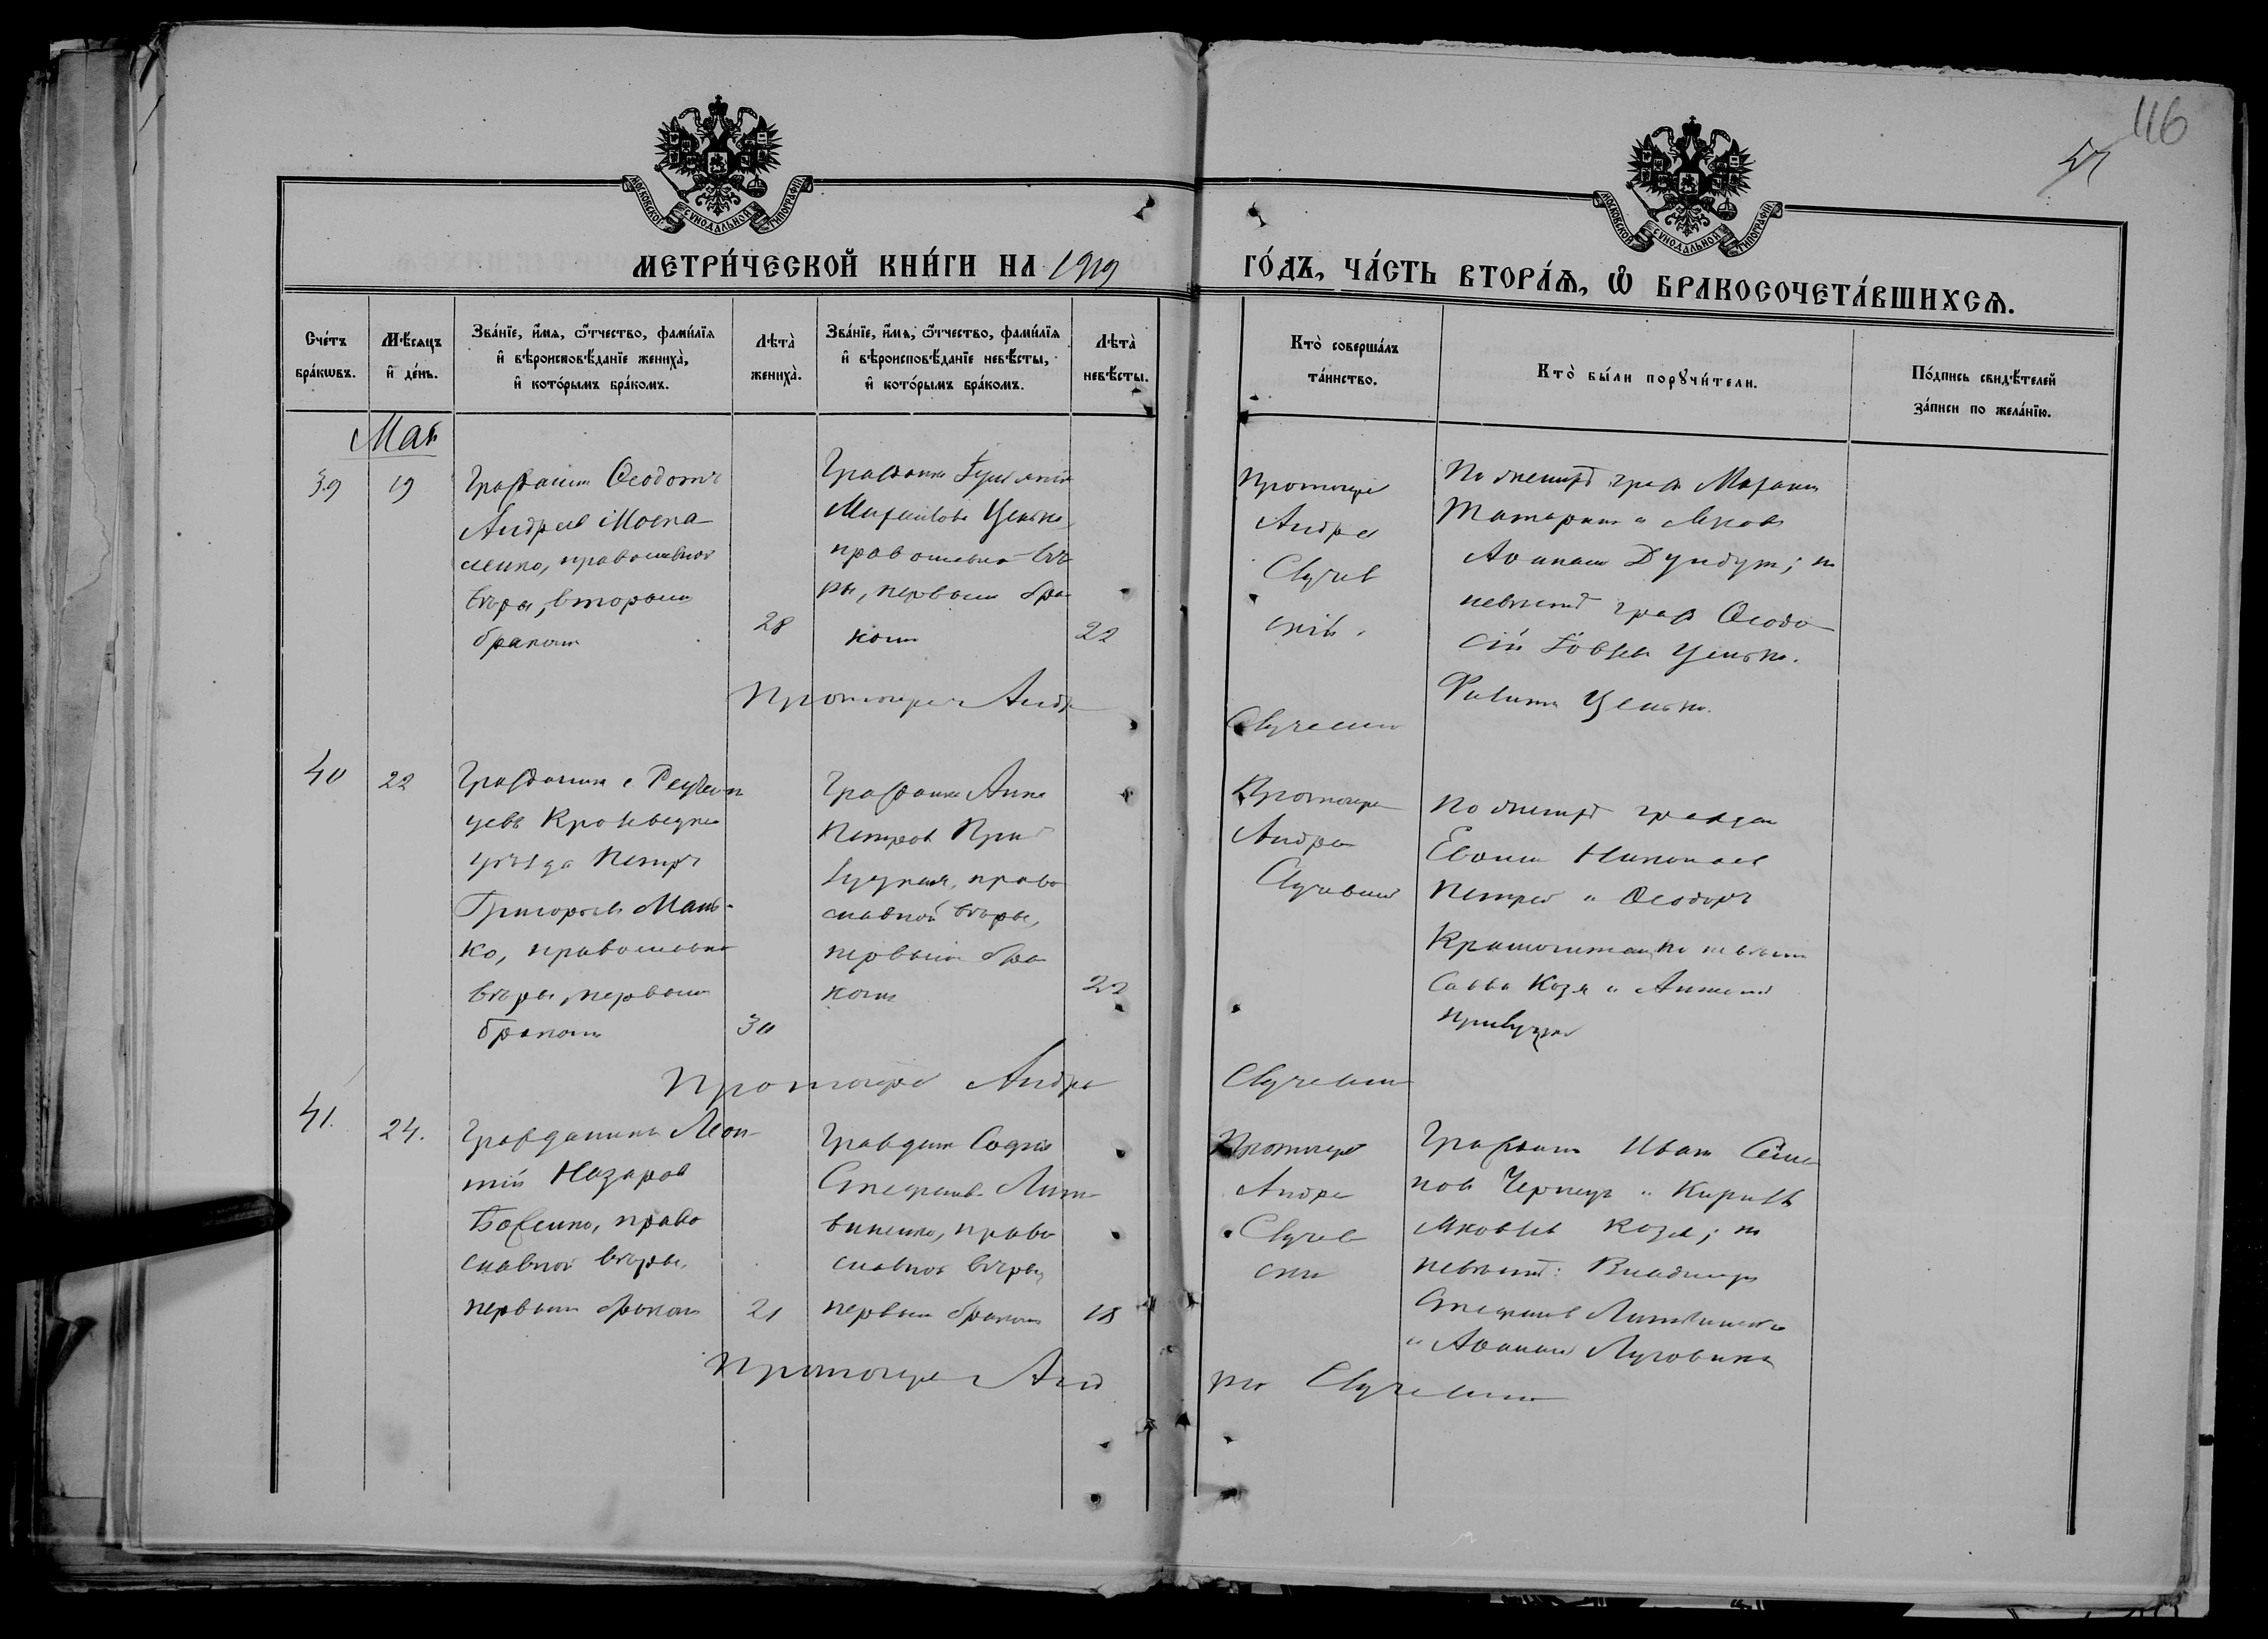 116
57
МОСКОВСКОЙ СУНОДАЛЬНОЙ ТИПОГРАФІИ
МОСКОВСКОЙ СУНОДАЛЬНОЙ ТИПОГРАФІИ
МЕТРИ́ЧЕСКОЙ КНИ́ГИ НА 1919
ГО́ДЪ, ЧА́СТЬ ВТОРА́Ѧ, Ѽ БРАКОСОЧЕТА́ВШИХСѦ.
Сче́тъ
бра́кѡвъ.
Мѣ́сѧцъ
и҆ де́нь.
Зва́нїе, и҆́мѧ, ѻ҆́тчество, фами́лїѧ
и҆ вѣроисповѣ́данїе женихà,
и҆ кото́рымъ бра́комъ.
Лѣтà
женихà.
Зва́нїе, и҆́мѧ, ѻ҆́тчество, фами́лїѧ
и҆ вѣроисповѣ́данїе невѣ́сты,
и҆ кото́рымъ бра́комъ.
Лѣтà
невѣ́сты.
Кто̀ соверша́лъ
та́инство.
Кто̀ бы́ли порꙋчи́тели.
По́дпись свидѣ́телей
за́писи по жела́нїю.
Май
39
19
Гражданин Ѳеодотъ
Андреев Моспа
ленко, православной
вѣры, вторым
браком
28
Гражданка
Михаилова Ценко,
православной вѣ
ры, первым бра
ком
22
Протоиерей
Андрей
Случев
скій.
По женихѣ граж
Татарин и Яков
Аѳанасьев Дундук; по
невѣстѣ граж Ѳеодо
сій Іовлев Ценко.
Филипп Ценко.
Протоиерей Андр
Случевский
40
22
Гражданин с. Реутин
цевъ Кролевецкаго
уѣзда Петръ
Григорьев Мань-
ко, православной
вѣры, первым
браком
30
Гражданка Анна
Петрова При
луцкая, право
славной вѣры,
первым бра
ком
22
Протоиерей
Андрей
Случевский
По женихѣ граждан
Николаев
Петрей и Ѳеодоръ
по невѣстѣ
Савва Козел и
Прилуцкий
Протоиерей Андрей
Случевский
41.
24.
Гражданинъ Леон-
тій Назаров
Боженко, право
славной вѣры,
первым браком
21
Граждан София
Стефанова Лит
виненко, право
славной вѣры,
первым браком
18
Протоиерей
Андрей
Случев
ский
Граждан Иван Семе
нов и Кирилл
Яковлев Козел; по
невѣстѣ: Владимир
Стефанов Литвиненко
и Аѳанасий Луговик
Протоиерей Анд
рей Случевский